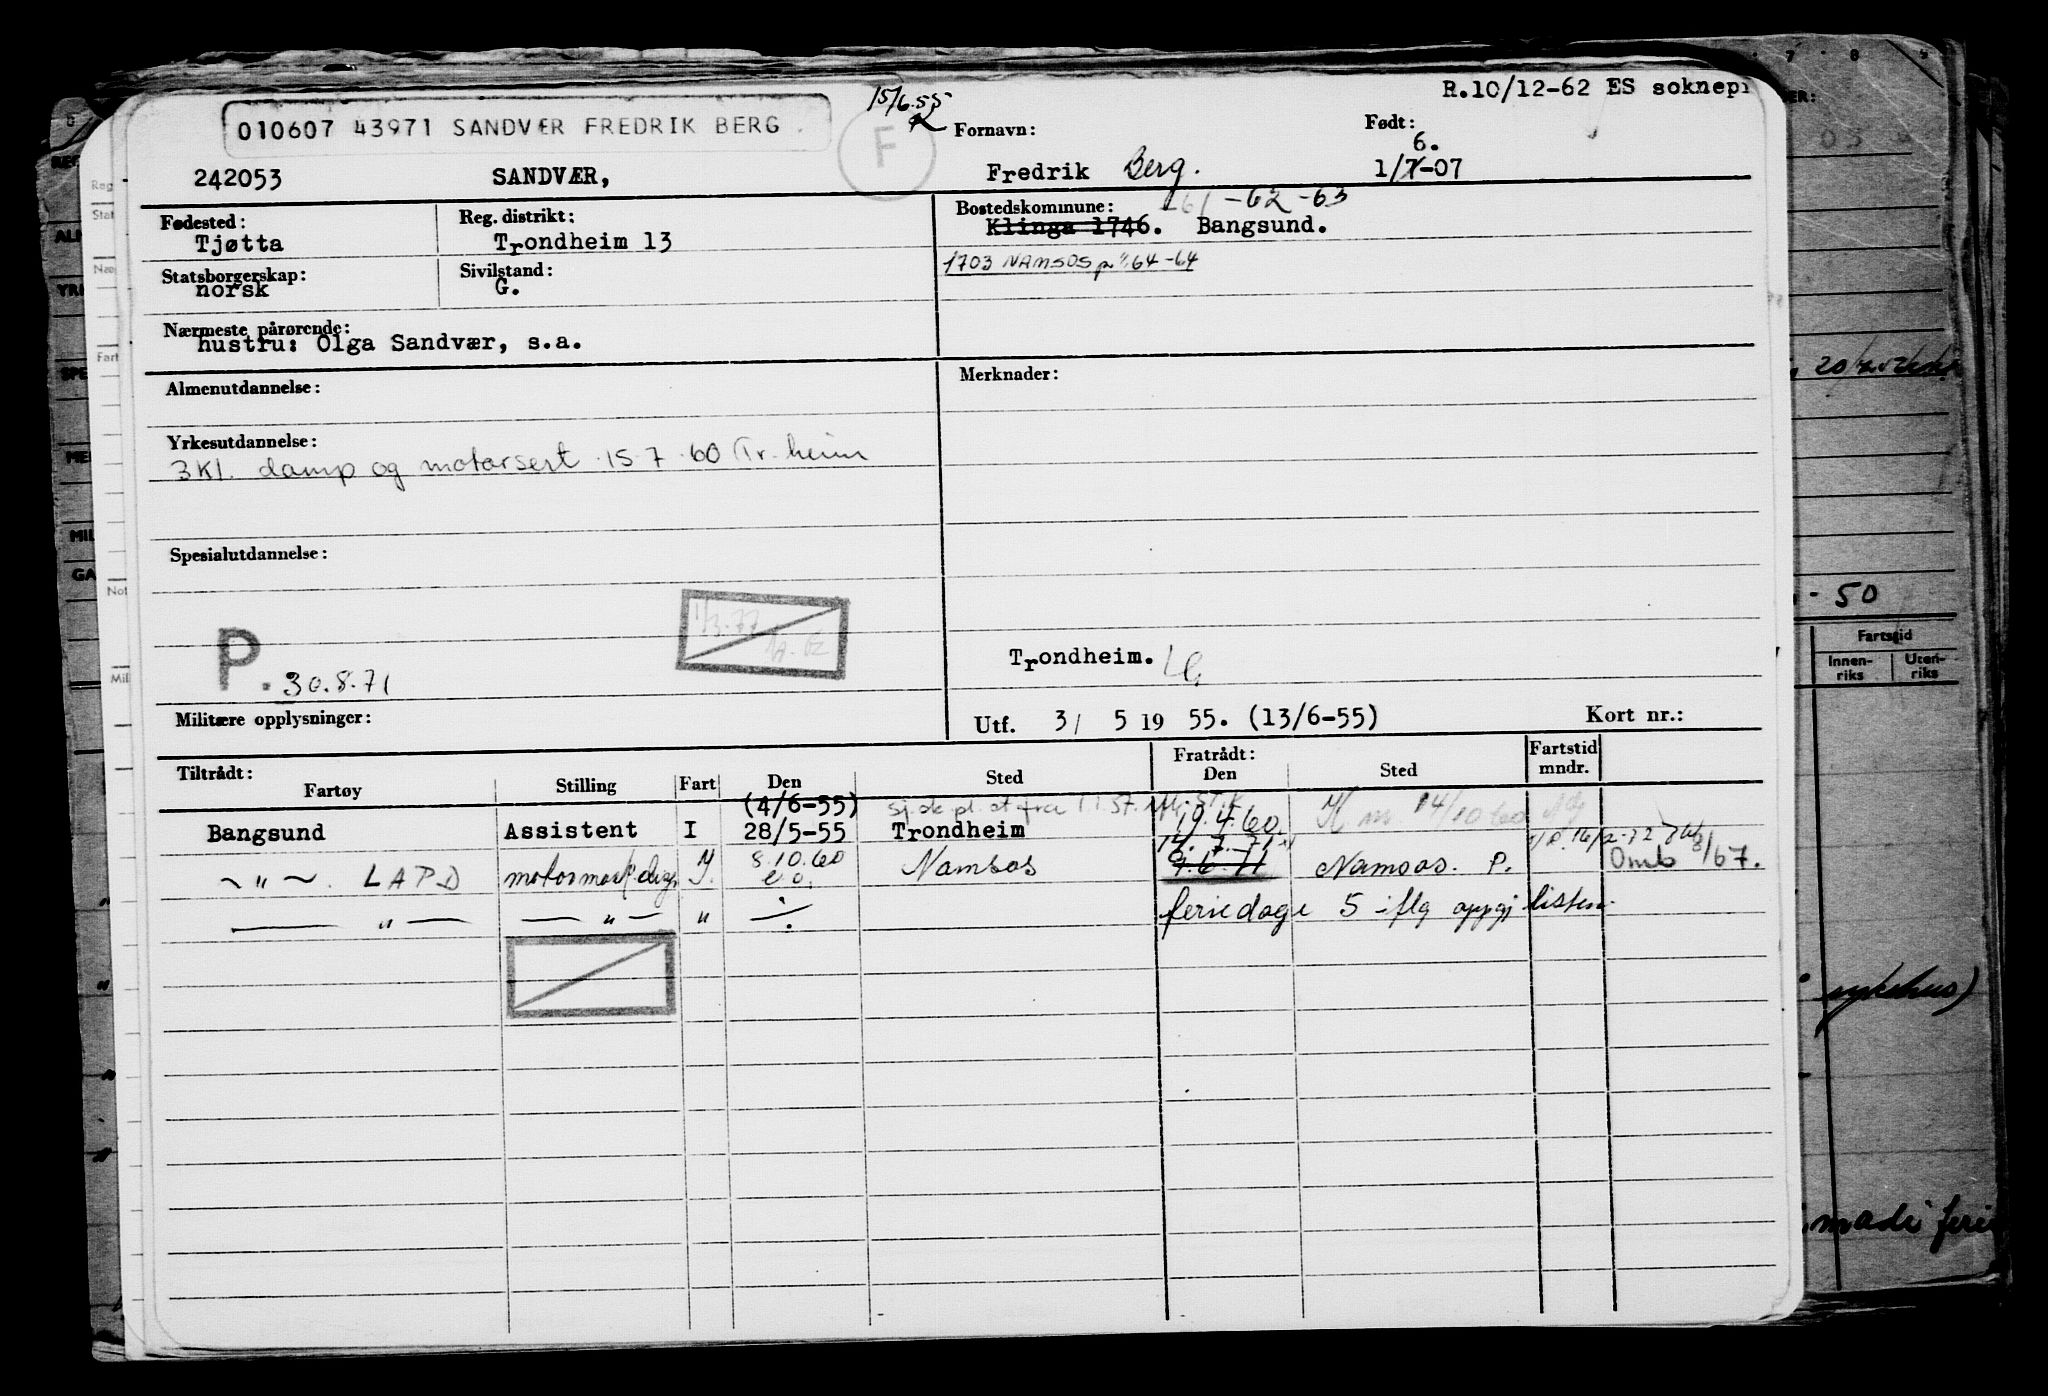 15/6.55
R.10/12-62 ES soknepr
010607 43971 SANDVÆR FREDRIK BERG
F
Fornavn:
Født:
6.
242053 SANDVÆR, Fredrik Berg. 1/7-07
Fødested: Reg. distrikt: Bostedskommune: 61-62-63
Tjøtta Trondheim 13 Klinga 1746. Bangsund.
Statsborgerskap: Sivilstand: 1703 NAMSOS 64-64
norsk G.
Nærmeste pårørende:
hustru: Olga Sandvær, s.a.
Almenutdannelse: Merknader:
Yrkesutdannelse:
3 kl. damp og motorsert 15.7.60 Tr.heim
Spesialutdannelse:
1/3.77
Trondheim.
P. 30.8.71
Militære opplysninger: Utf. 3/ 5 19 55. (13/6-55) Kort nr.:
Tiltrådt: Fratrådt: Fartstid
Fartøy Stilling Fart Den Sted Den Sted mndr.
(4/6-55)
Bangsund Assistent I 28/5-55 Trondheim 19.4.60 14/10 60
14.7.71
— " — LAPD 8.10.60 Namsos 1.6.71 Namsos. P. Omb 8/67.
— " — — " — " feriedage 5 iflg oppgj listen.
7 8
05
20/
- 50
Fartstid
Innen-riks Uten-riks
sykehus)
REG
Stat
Fart
Not
Mil